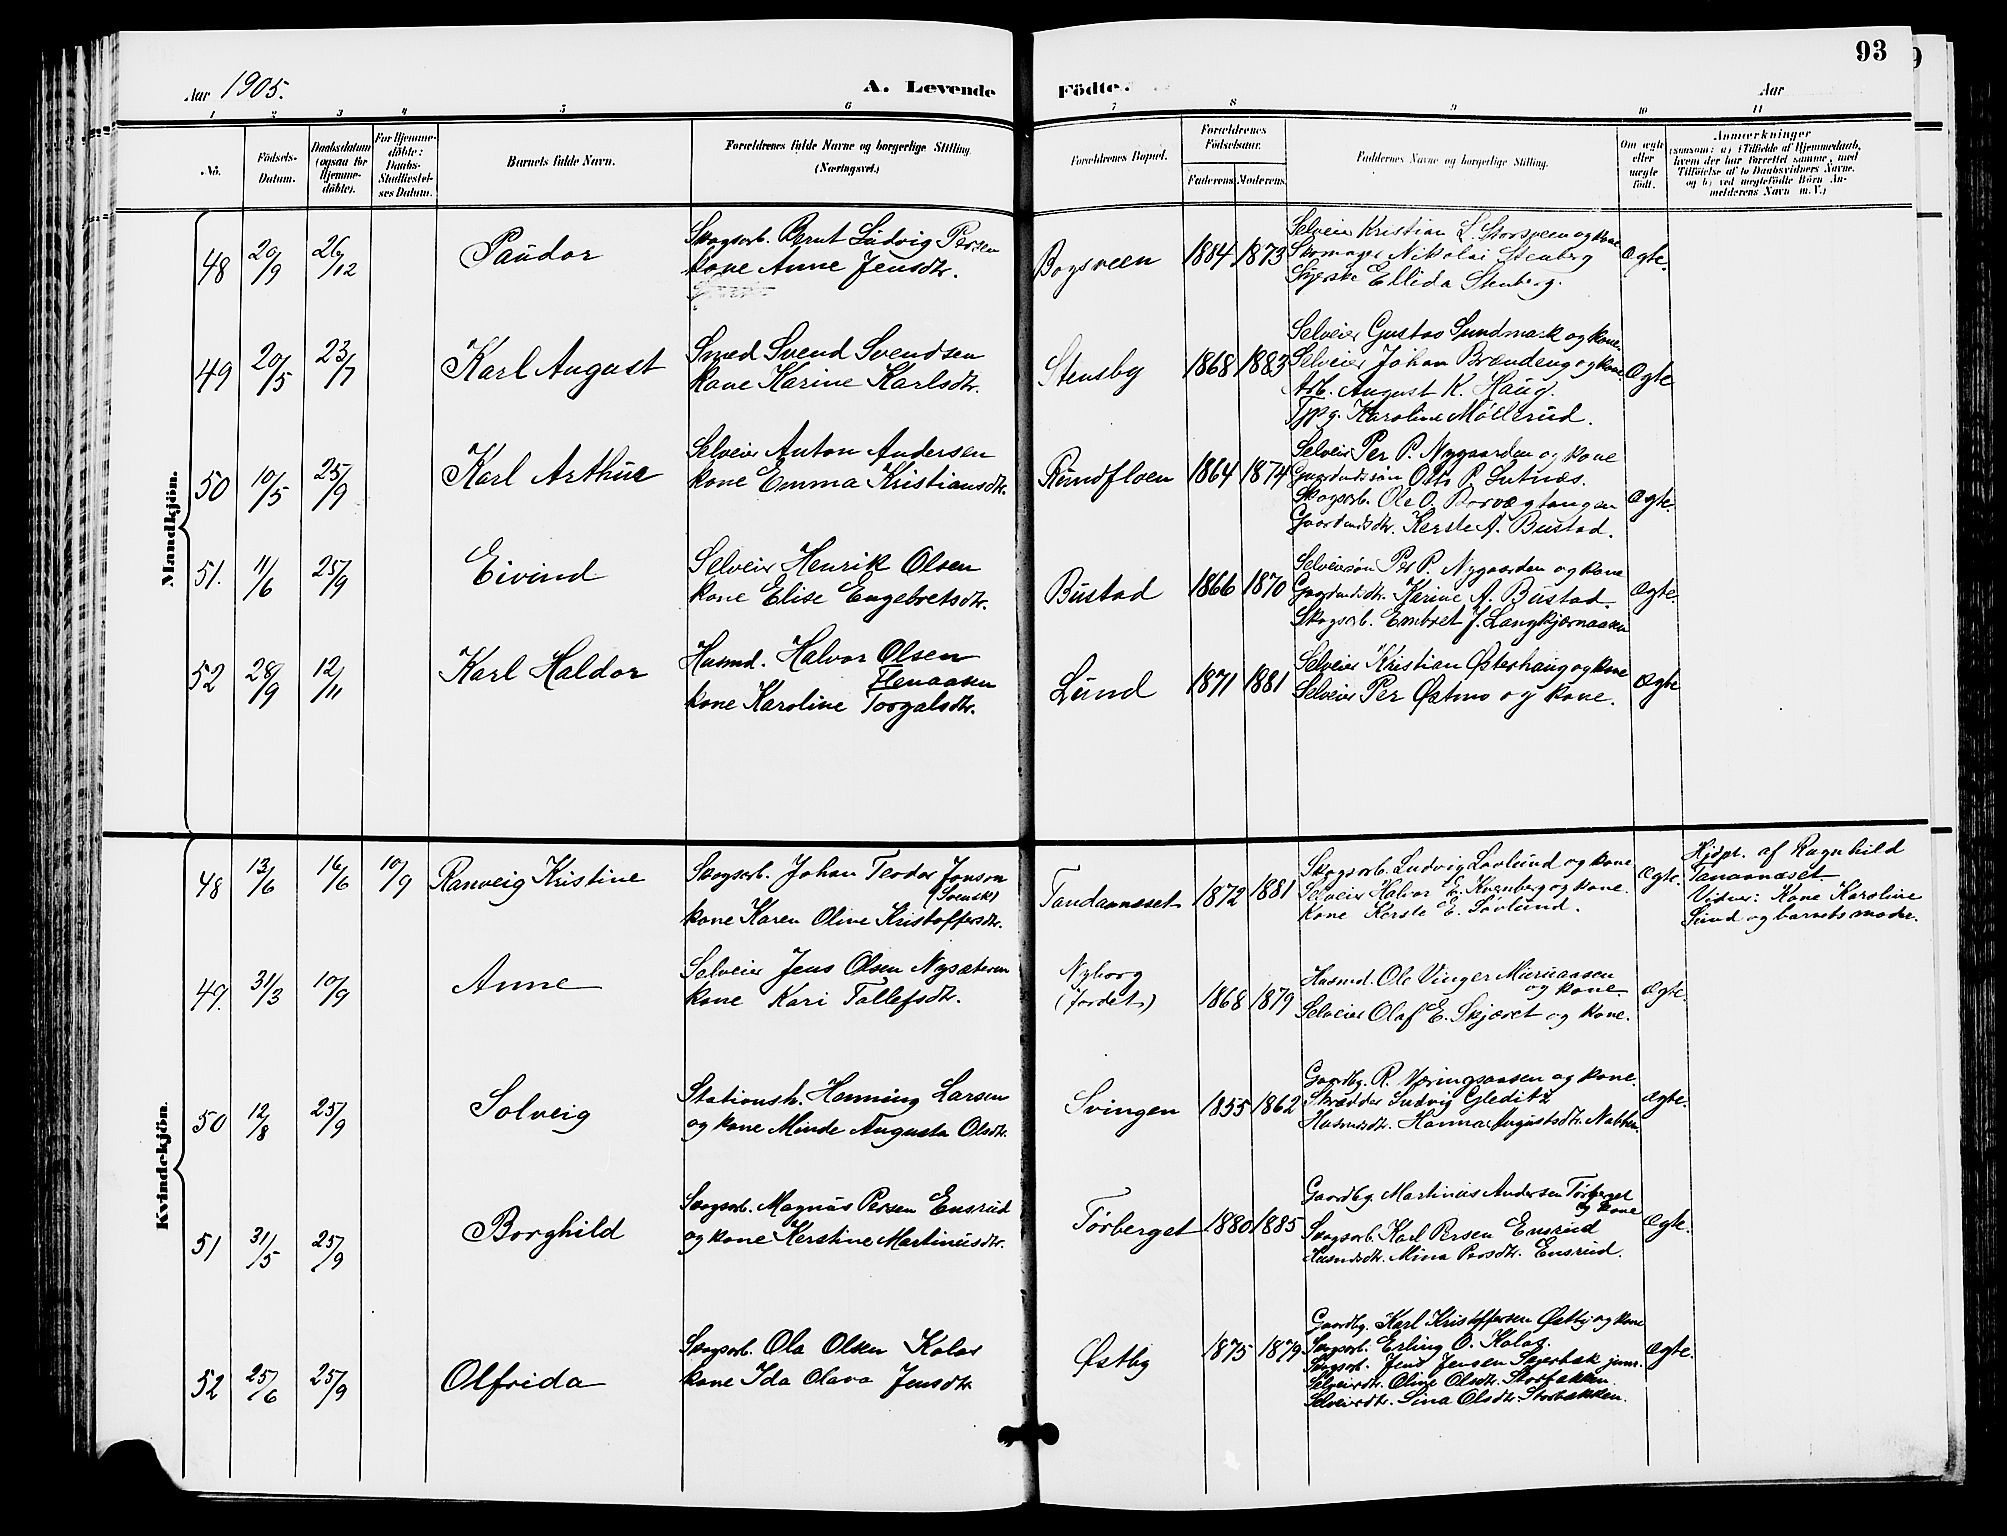 93
Aar 1905.
A. Levende Födte.
Aar
1 2 3 4 5 6 7 8 9 10 11
No.
Födsels-Datum.
Daabsdatum (ogsaa for Hjemmedöbte).
For Hjemmedöbte: Daabs-Stadfæstelses Datum.
Barnets fulde Navn.
Forældrenes fulde Navne og borgerlige Stilling (Næringsvei.)
Forældrenes Bopæl.
Forældrenes Födselsaar.
Faderens. Moderens.
Faddernes Navne og borgerlige Stilling.
Om ægte eller uægte født.
Anmærkninger
(saasom: a) i Tilfælde af Hjemmedaab, hvem der har forrettet samme, med Tilföielse af to Daabsvidners Navne, og b) ved uægtefödte Börn Anmelderens Navn m. V.)
Mandkjön.
48 20/9 26/12 Paudor
Skogsarb. Bernt Ludvig Persen
kone Anne Jensdtr.
Bogsveen 1884 1873
Selveier Kristian L. Storsveen og kone
Skomager Nikolai Stenberg
Syerske Ellida Stenberg.
Ægte.
49 20/5 23/7 Karl August
Smed Svend Svendsen
kone Karine Karlsdtr.
Stensby 1868 1883
Selveier Gustav Sundmark og kone
Selveier Johan Brændeng og kone
Arb. August K. Haug.
Tjpg. Karoline Möllerud.
Ægte
50 10/5 25/9 Karl Arthur
Selveier Anton Andersen
kone Emma Kristiansdtr.
Rundfloen 1864 1874
Selveier Per P. Nygaarden og kone
Gaardmdssön Otto P. Lutnæs.
Skogsarb. Ole O.
Gaardmdsdtr. Kerste A. Bustad.
Ægte.
51. 11/6 25/9 Eivind
Selveier Henrik Olsen
kone Elise Engebretsdtr.
Bustad 1866 1870
Selveiersön Per P. Nygaarden og kone
Gaardmdsdtr. Karine A. Bustad.
Skogsarb. Embret J. Langkjærnaasen
Ægte.
52 28/9 12/11 Karl Haldor
Husmd. Halvor Olsen
Henaasen
kone Karoline Torgalsdtr.
Lund 1871 1881
Selveier Kristian Østerhaug og kone
Selveier Per Østmo og kone.
Ægte
Kvindekjön.
48 13/6 16/6 10/9 Ranveig Kristine
Skogsarb. Johan Teodor Jonson
(Svensk)
kone Karen Olive Kristoffersdtr.
Tandaanesset 1872 1881
Skogsarb. Ludvig Lövlund og kone
Selveier Halvor E. Kvenberg og kone.
Kone Kerste E. Lövlund.
Ægte.
Hjdpt. af Ragnhild
Tanaanæset
Vidner: Kone Karoline
Lund og barnets moder.
49. 31/3 10/9 Anne
Selveier Jens Olsen Nysæteren
kone Kari Tollefsdtr.
Nyborg
(Jordet)
1868 1879
Husmd. Ole Vinger Muruaasen
og kone.
Selveier Olaf E. Skjæret og kone.
Ægte.
50 12/8 25/9 Solveig
Stationsh. Henning Larsen
og kone Minda Augusta Olsdtr.
Svingen 1855 1862
Gaardbg. R. Væringsaasen og kone.
Skrædder Ludvig Gleditz
Husmdsdtr. Hanna Augustsdtr. Nabben.
Ægte.
51 31/5 25/9 Borghild
Skogsarb. Magnus Persen Ensrud
og kone Kerstine Martinusdtr.
Törberget 1880 1885
Gaardbg. Martinus Andersen Törberget
og kone
Skogsarb. Karl Persen Ensrud
Husmdsdtr. Mina Persdtr. Ensrud.
Ægte.
52 25/6 25/9 Olfrida
Skogsarb. Ola Olsen Kolos
kone Ida Olava Jensdtr
Østby 1875 1879
Gaardbg. Karl Kristoffersen Østby og kone
Skogsarb. Erling O. Kolos.
Skogsarb. Jens Jensen junr.
Selveierdtr. Oline Olsdtr. Storbakken.
Selveierdtr. Lina Olsdtr. Storbakken.
Ægte.